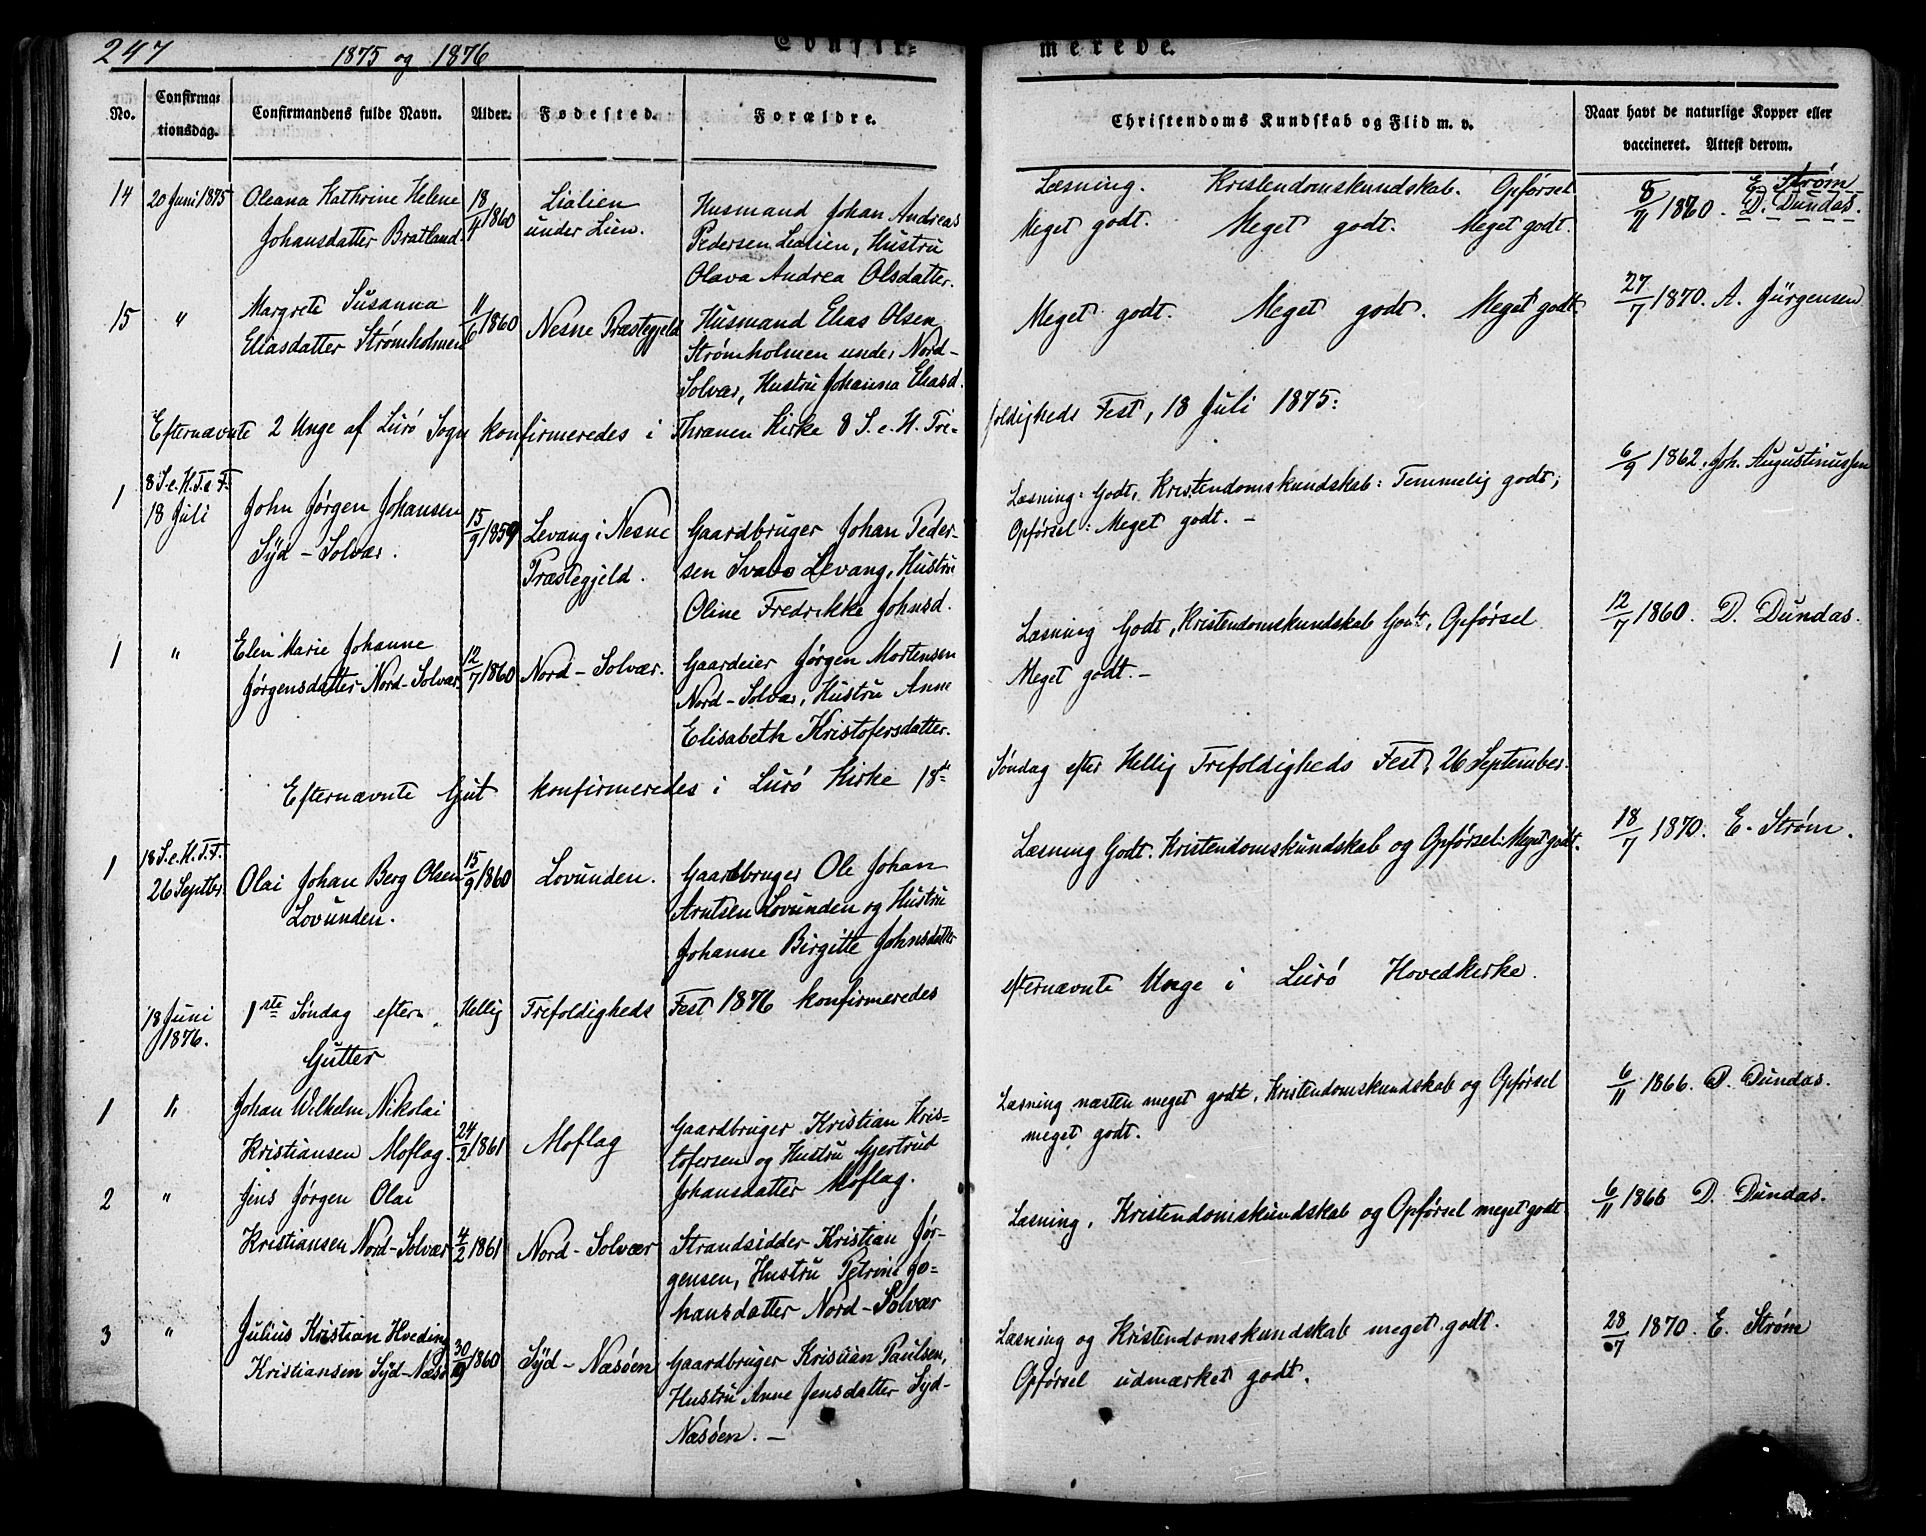 247
1875 og 1876
Confir=
merede.
No.
Confirma=
tionsdag.
Confirmandens fulde Navn.
Alder.
Fødested.
Forældre.
Christendoms Kundskab og Flid m. v.
Naar havt de naturlige Kopper eller
vaccineret. Attest derom.
14 20 Juni 1875 Oleana Kathrine Helene
Johansdatter Bratland.
18/4 1860
Lialien
under Lien.
Husmand Johan Andreas
Pedersen Lialien, Hustru
Olava Andrea Olsdatter.
Læsning. Kristendomskundskab. Opførsel
Meget godt. Meget godt. Meget godt.
E. Strøm
8/11 1860. D. Dundas.
15 " Margrete Susanna
Eliasdatter Strømholmen
11/6 1860
Nesne Præstegjeld
Husmand Elias Olsen
Strømholmen under Nord-
Solvær, Hustru Johanna Eliasd.
Meget godt. Meget godt. Meget godt.
27/7 1870. A. Jürgensen
Efternævnte 2 Unge af Lurö Sogn konfirmeredes i Thrænen Kirke 8 S. e. H. Tre-
foldigheds Fest, 18 Juli 1875:
1 8 S. e. H. T. F.
18 Juli
John Jørgen Johansen
Syd-Solvær.
15/9 1859
Levang i Nesne
Præstegjeld.
Gaardbruger Johan Peder-
sen Levang, Hustru
Oline Fredrikke Johnsd.
Læsning: Godt, Kristendomskundskab: Temmelig godt;
Opførsel: Meget godt. -
6/9 1862. Joh. Augustinussen
1 " Elen Marie Johanne
Jørgensdatter Nord-Solvær.
12/7 1860
Nord-Solvær.
Gaardeier Jørgen Mortensen
Nord-Solvær, Hustru Anne
Elisabeth Kristofersdatter.
Læsning Godt, Kristendomskundskab Godt, Opførsel
Meget godt. -
12/7 1860. D. Dundas.
Efternævnte Gut konfirmeredes i Lurö Kirke 18de
Søndag efter Hellig Trefoldigheds Fest, 26 September.
1 18 S. e. H. T. F.
26 Septbr.
Olai Johan Berg Olsen
Lovunden.
15/9 1860
Lovunden.
Gaardbruger Ole Johan
Arntsen Lovunden og Hustru
Johanne Birgitte Johnsdatter
Læsning Godt. Kristendomskundskab og Opførsel: Meget godt.
18/7 1870. E. Strøm.
18 Juni
1876.
1ste Søndag efter Hellig Trefoldigheds Fest 1876 konfirmeredes
efternævnte Unge i Lurö Hovedkirke.
Gutter
1 " Johan Wilhelm Nikolai
Kristiansen Moflag.
24/2 1861
Moflag
Gaardbruger Kristian Kris-
tofersen og Hustru Gjertrud
Johansdatter Moflag.
Læsning næsten meget godt, Kristendomskundskab og Opførsel
meget godt.
6/11 1866. D. Dundas.
2 " Jens Jørgen Olai
Kristiansen Nord-Solvær
4/2 1861
Nord-Solvær
Strandsidder Kristian Jør-
gensen, Hustru Petrine Jo-
hansdatter Nord-Solvær
Læsning, Kristendomskundskab og Opførsel meget godt
6/11 1866 D. Dundas.
3 " Julius Kristian Hveding
Kristiansen Syd-Næsø
1860
Syd-Næsøen
Gaardbruger Kristian Paulsen,
Hustru Anne Jensdatter Syd-
Næsøen. -
Læsning og Kristendomskundskab meget godt.
Opførsel udmærket godt.
28/7 1870. E. Strøm